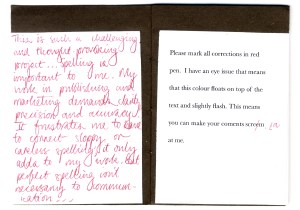 This is such a challenging
and thought provoking
project... Spelling is
important to me. My
work in publishing and
marketing demands clarity
precision and accuracy.
It frustrates me to have
to correct sloppy or
careless spelling; it only
adds to my work. But
perfect spelling isn't
necessary to communi-
cation...
Please mark all corrections in red
pen. I have an eye issue that means
that this colour floats on top of the
text and slightly flash. This means
you can make your coments
at me.